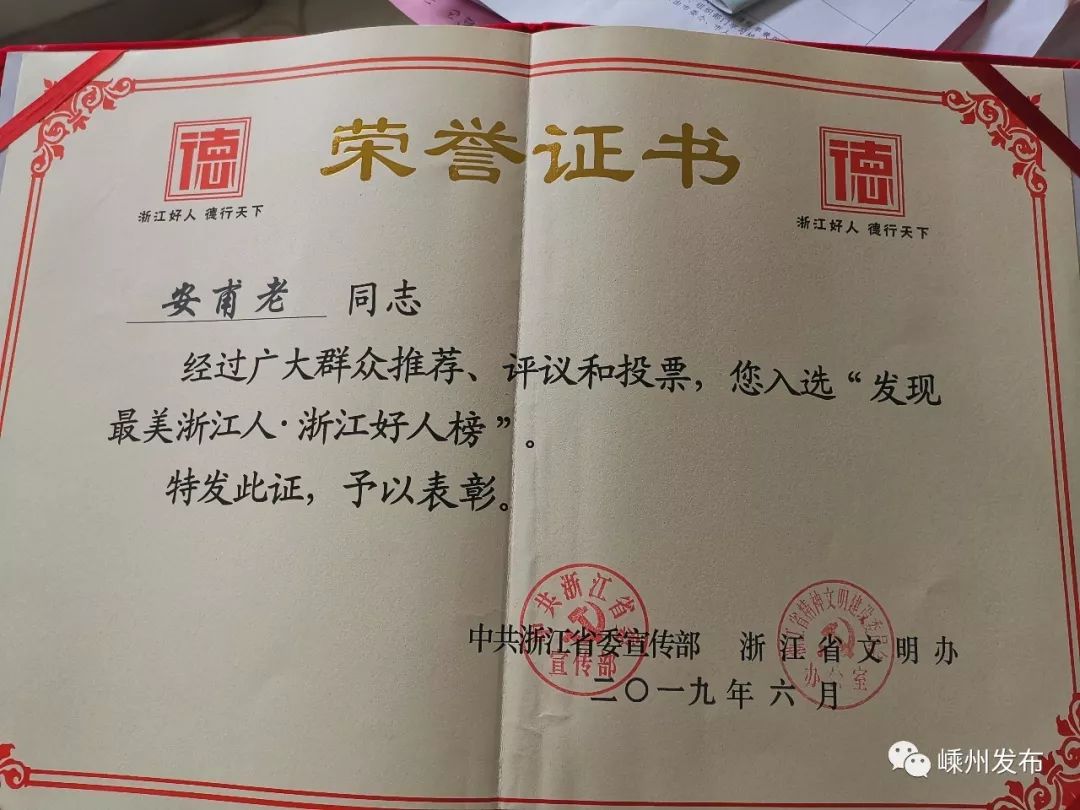 荣誉证书
德
浙江好人 德行天下
德
浙江好人 德行天下
安甫老 同志
经过广大群众推荐、评议和投票，您入选“发现
最美浙江人·浙江好人榜”。
特发此证，予以表彰。
中共浙江省委宣传部 浙江省文明办
二〇一九年六月
共浙江省
宣传部
省精神文明建设委员会
办公室
嵊州发布